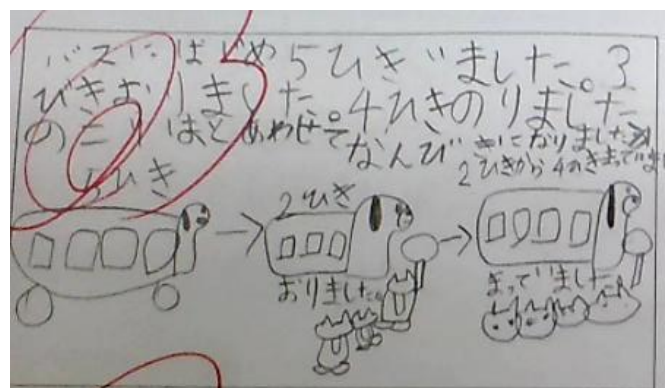 バスにはじめ5ひきいました。3
びきおりました。4ひきのりました
のこりはとあわせてなんびきになりました
2ひきから4
5ひき
2ひき
おりました。
まっていました